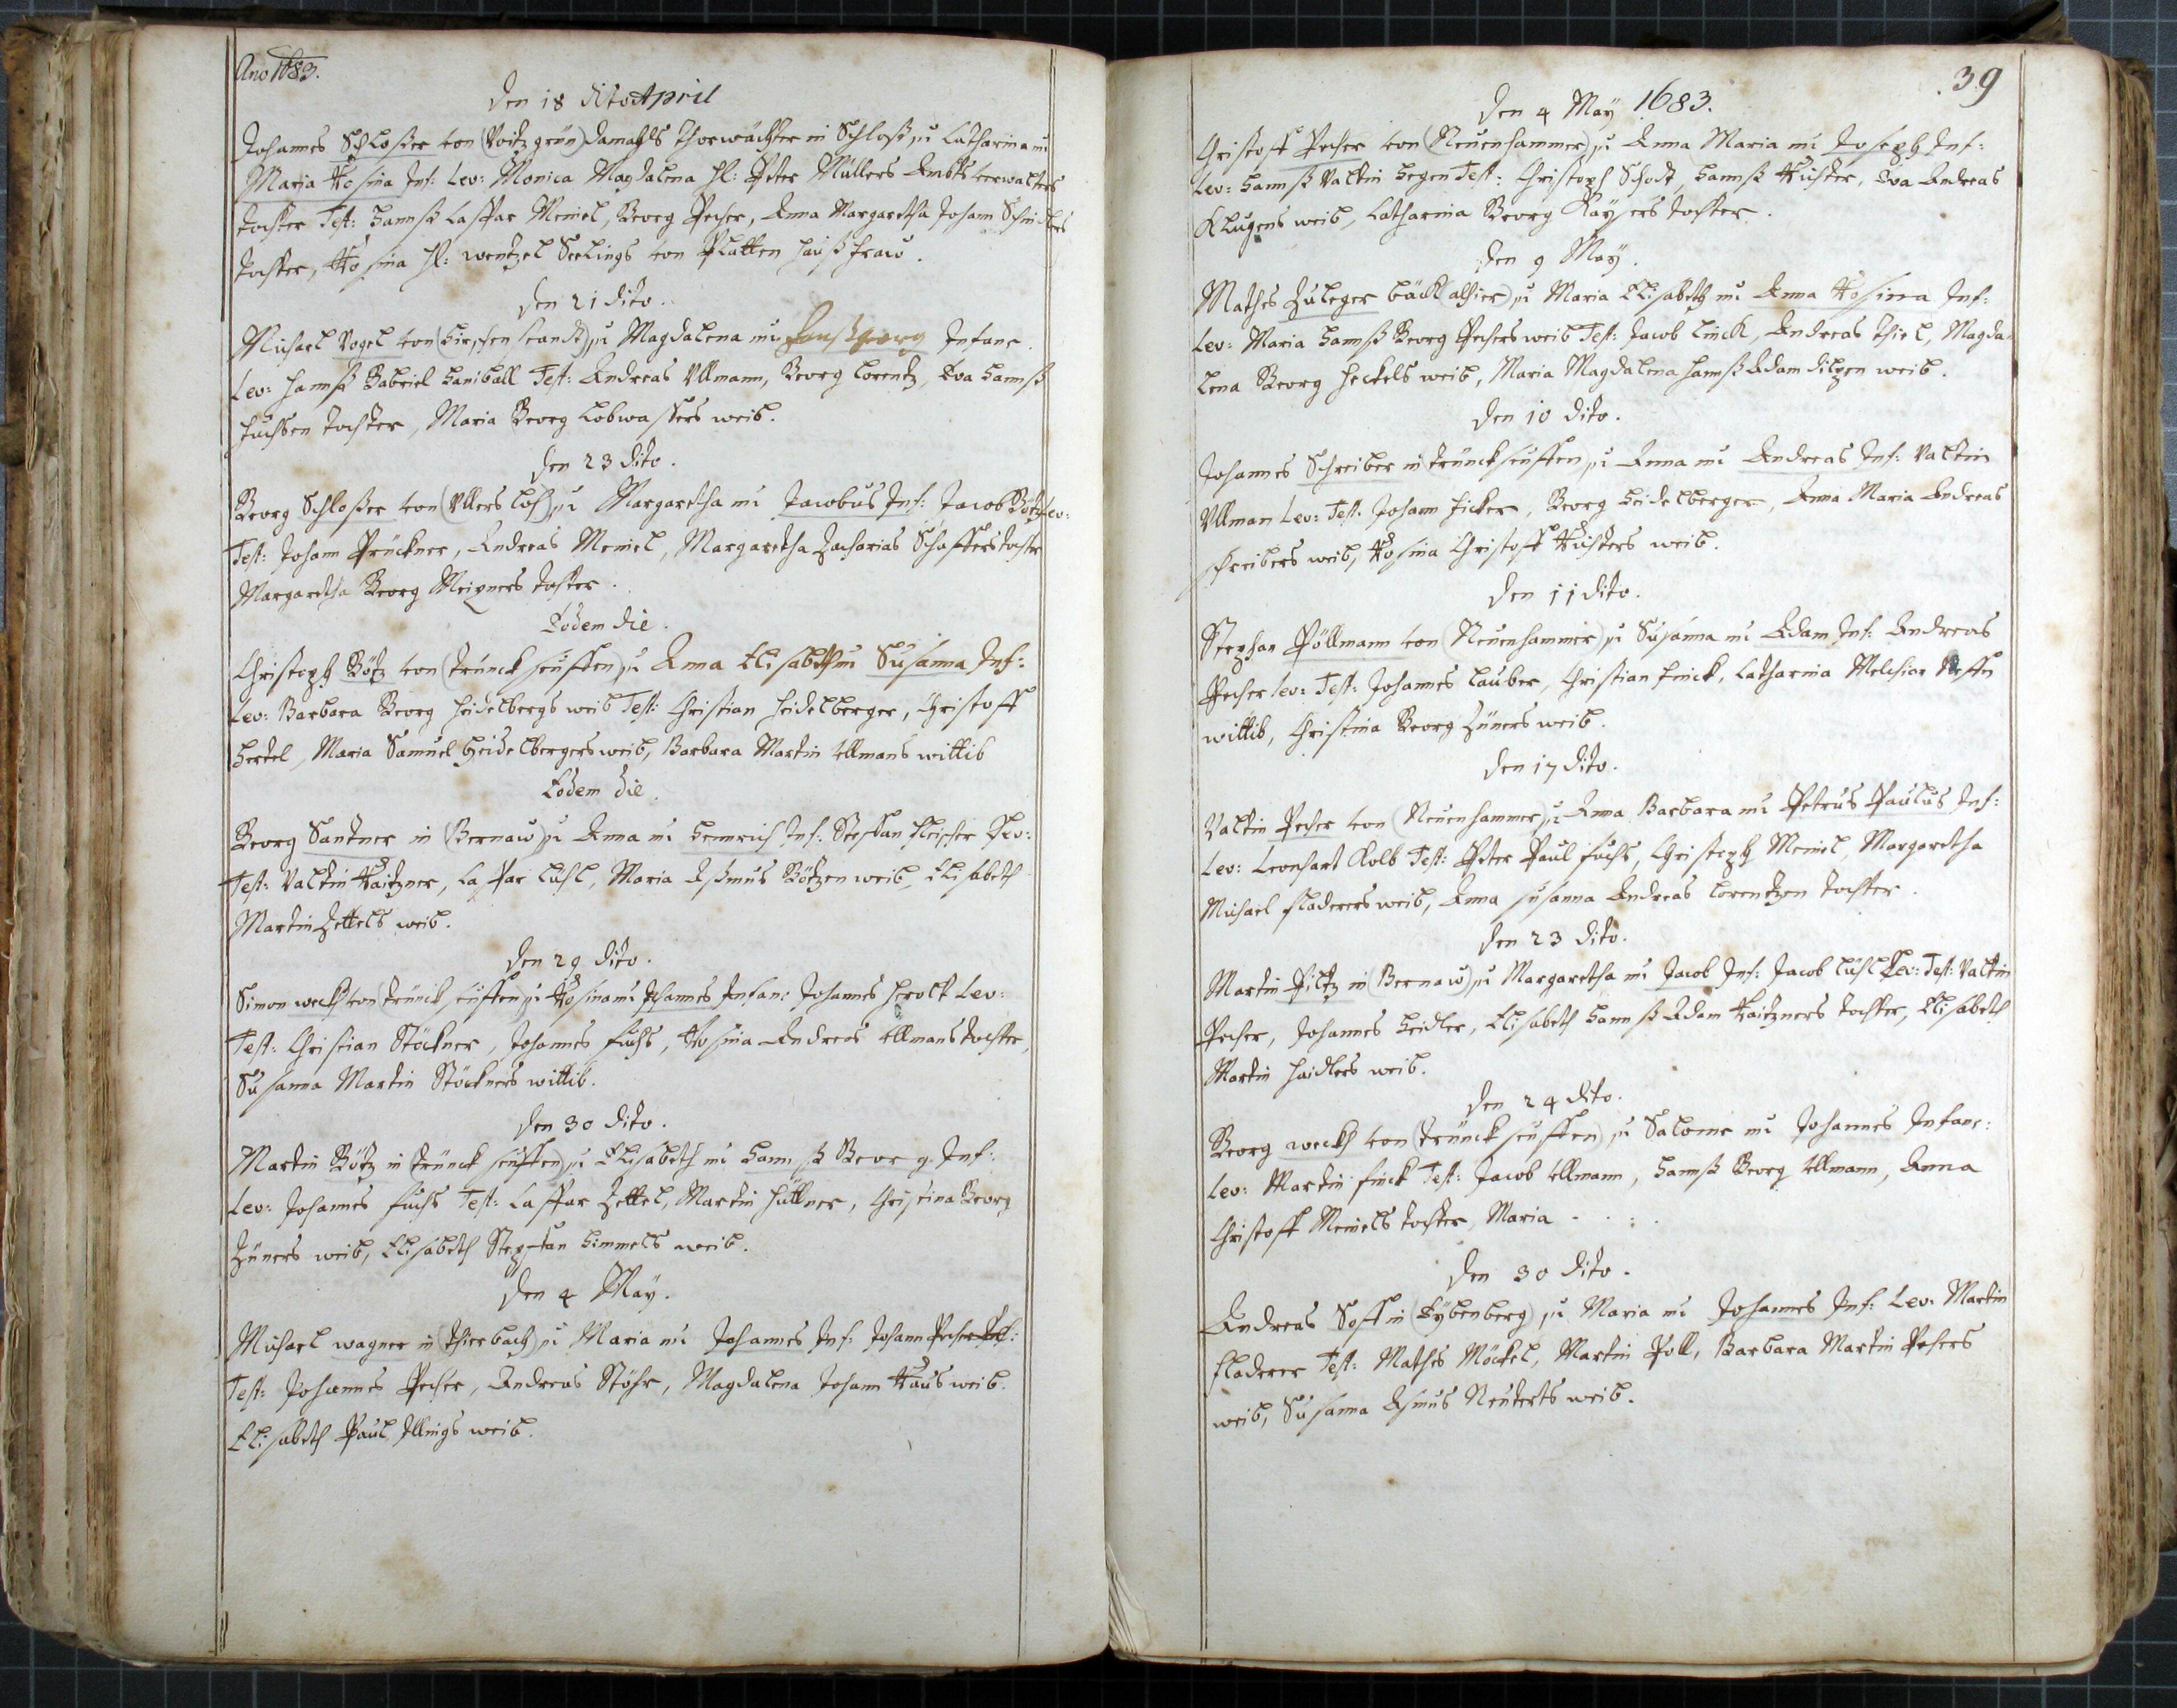 Ano 1683.
Den 18 dito April
Johannes Schloßer von (Voitzgrün) damahls Thorwächter in Schloß, ux Catharina nu
Maria Rosina Inf: Lev: Monica Magdalena H: Peter Müllers Ambts verwalters
tochter Test: Hannß Caspar Meinel, Georg Pecher, Anna Margaretha Johann Schmidts
tochter, Rosina H: wentzel Seelings von Platten haußfraw.
Den 21 dito.
Michael Vogel von (Hirschenstandt) ux Magdalena nu Hanßgeorg Infans.
Lev: Hannß Gabriel Haniball Test: Andreas Ullmann, Georg Lorentz, Eva Hannß
fuchsen tochter, Maria Georg Lobwaßers weib.
Den 23 dito.
Georg Schloßer von (Ullersloh) ux Margaretha nu Jacobus Inf: Jacob Götz Lev:
Test: Johann Prückner, Andreas Meinel, Margaretha Zacharias Schaffers tochter
Margaretha Georg Meixners tochter.
Eodem die.
Christoph Götz von (Trünckseiffen) ux Anna Elisabeth nu Susanna Inf:
Lev: Barbara Georg Heidelbergs weib Test: Christian Heidelberger, Christoff
Hertel, Maria Samuel Heidelbergers weib, Barbara Martin Ullmans wittib
Eodem die.
Georg Santner in (Bernaw) ux Anna nu Heinrich Inf: Stephan fleischer Lev:
Test: Valtin Kaitzner, Caspar Lühl, Maria Aßmus Götzen weib, Elisabeth
Martin Zettels weib.
Den 29 dito.
Simon weckh von (Trünckseiffen) ux Rosina nu Johannes Infans: Johannes Herolt Lev:
Test: Christian Stöckner, Johannes fuchs, Rosina Andreas Ullmans tochter,
Susanna Martin Stöckners wittib.
Den 30 dito.
Martin Götz in (Trünckseiffen) ux Elisabeth nu Hannß Georg Inf:
Lev: Johannes fuchs Test: Caspar Zettel, Martin Hüttner, Christina Georg
Züners weib, Elisabeth Stephan Himmels weib.
Den 4 May.
Michael wagner in (Thierbach) ux Maria nu Johannes Inf: Johann Pecher Test:
Test: Johannes Pecher, Andreas Stöhr, Magdalena Johann Kaus weib.
Elisabeth Paul Illings weib.
39
Den 4 May 1683.
Christoff Pecher von (Neuenhammer) ux Anna Maria nu Joseph Inf:
Lev: Hannß Valtin Hegen Test: Christoph Schodt, Hannß Richter, Eva Andreas
Klugens weib, Catharina Georg Kaysers tochter.
Den 9 May.
Mathes Zuleger bäck (alhier) ux Maria Elisabeth nu Anna Rosina Inf:
Lev: Maria Hannß Georg Pechers weib Test: Jacob Linck, Andreas Thiel, Magda-
lena Georg Heckels weib, Maria Magdalena Hannß Adam dilgen weib.
Den 10 dito.
Johannes Schreiber in (Trünckseiffen) ux Anna nu Andreas Inf: Valtin
Ullman Lev: Test: Johann ficker, Georg Heidelberger, Anna Maria Andreas
schreibers weib, Rosina Christoff Richters weib.
Den 11 dito.
Stephan Pöllmann von (Neuenhammer) ux Susanna nu Adam Inf: Andreas
Pecher Lev: Test: Johannes Lauber, Christian finck, Catharina Melchior
wittib, Christina Georg Züners weib.
Den 17 dito.
Valtin Pecher von (Neuenhammer) ux Anna Barbara nu Petrus Paulus Inf:
Lev: Leonhart Kolb Test: Peter Paul fuchs, Christoph Meinel, Margaretha
Michael fladerers weib, Anna susanna Andreas Lorentzen tochter.
Den 23 dito.
Martin Piltz in (Bernaw) ux Margaretha nu Jacob Inf: Jacob Lühl Lev: Test: Valtin
Pecher, Johannes Heidler, Elisabeth Hannß Adam Kaitzners tochter, Elisabeth
Martin Haidlers weib.
Den 24 dito.
Georg weckh von (Trünckseiffen) ux Salome nu Johannes Infans:
Lev: Martin finck Test: Jacob Ullmann, Hannß Georg Ullmann, Anna
Christoff Meinels tochter, Maria - . . : .
Den 30 dito.
Andreas Soff in (Eybenberg) ux Maria nu Johannes Inf: Lev: Martin
fladerer Test: Mathes Möckel, Martin Poll, Barbara Martin Pechers
weib, Susanna Asmus Neuderts weib.